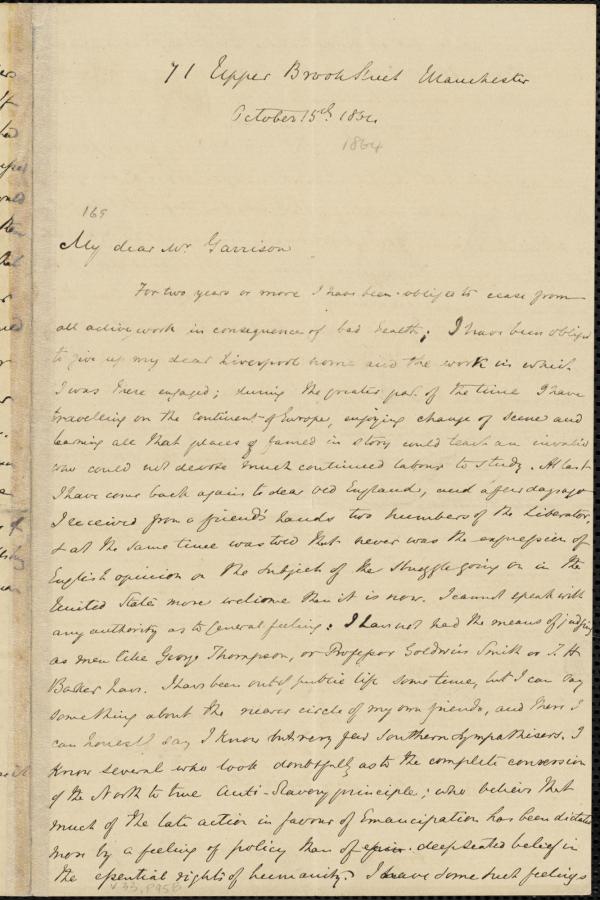 71 Upper Brook Street Manchester
October 15th 1864
1864
169
My dear Mr. Garrison
For two years or more I have been obliged to cease from
all active work in consequence of bad health; I have been obliged
to give up my dear Liverpool home and the work in which
I was there engaged; during the greater part of the time I have
travelling on the continent of Europe, enjoying change of scene and
learning all that places famed in story could teach an invalid
who could not devote much continued labour to study. At last
I have come back again to dear old England, and a few days ago
I received from a friend's hands two numbers of the Liberator,
& at the same time was told that never was the expression of
English opinion on the subject of the struggle going on in the
United States more welcome than it is now. I cannot speak with
any authority as to general feeling: I have not had the means of judging
as men like George Thompson, or Professor Goldwin Smith or T. H
Barker have. I have been out of public life some time, but I can say
something about the nearer circle of my own friends, and there I
can honestly say I know but very few Southern Sympathisers. I
know several who look doubtfully as to the complete conversion
of the North to true Anti-Slavery principle; who believe that
much of the late action in favour of Emancipation has been dictated
more by a feeling of policy than of deepseated belief in
the essential rights of humanity. I have some such feelings
v.33, p.95B